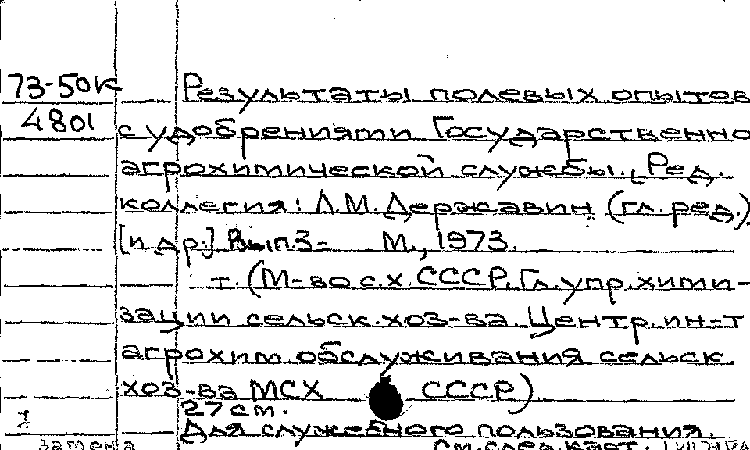 73-50К
4801
Результаты полевых опытов
с удобрениями Государственно
агрохимической службы. [Ред.
коллегия: Л.М. Державин (гл. ред.)
[и др.] Вып.3- М., 1973.
т. (М-во с.х. СССР. Гл. упр. хими-
зации сельск. хоз-ва. Центр. ин-т
агрохим. обслуживания сельск.
хоз-ва МСХ СССР)
27 см.
Для служебного пользования.
замена см. след. карт.